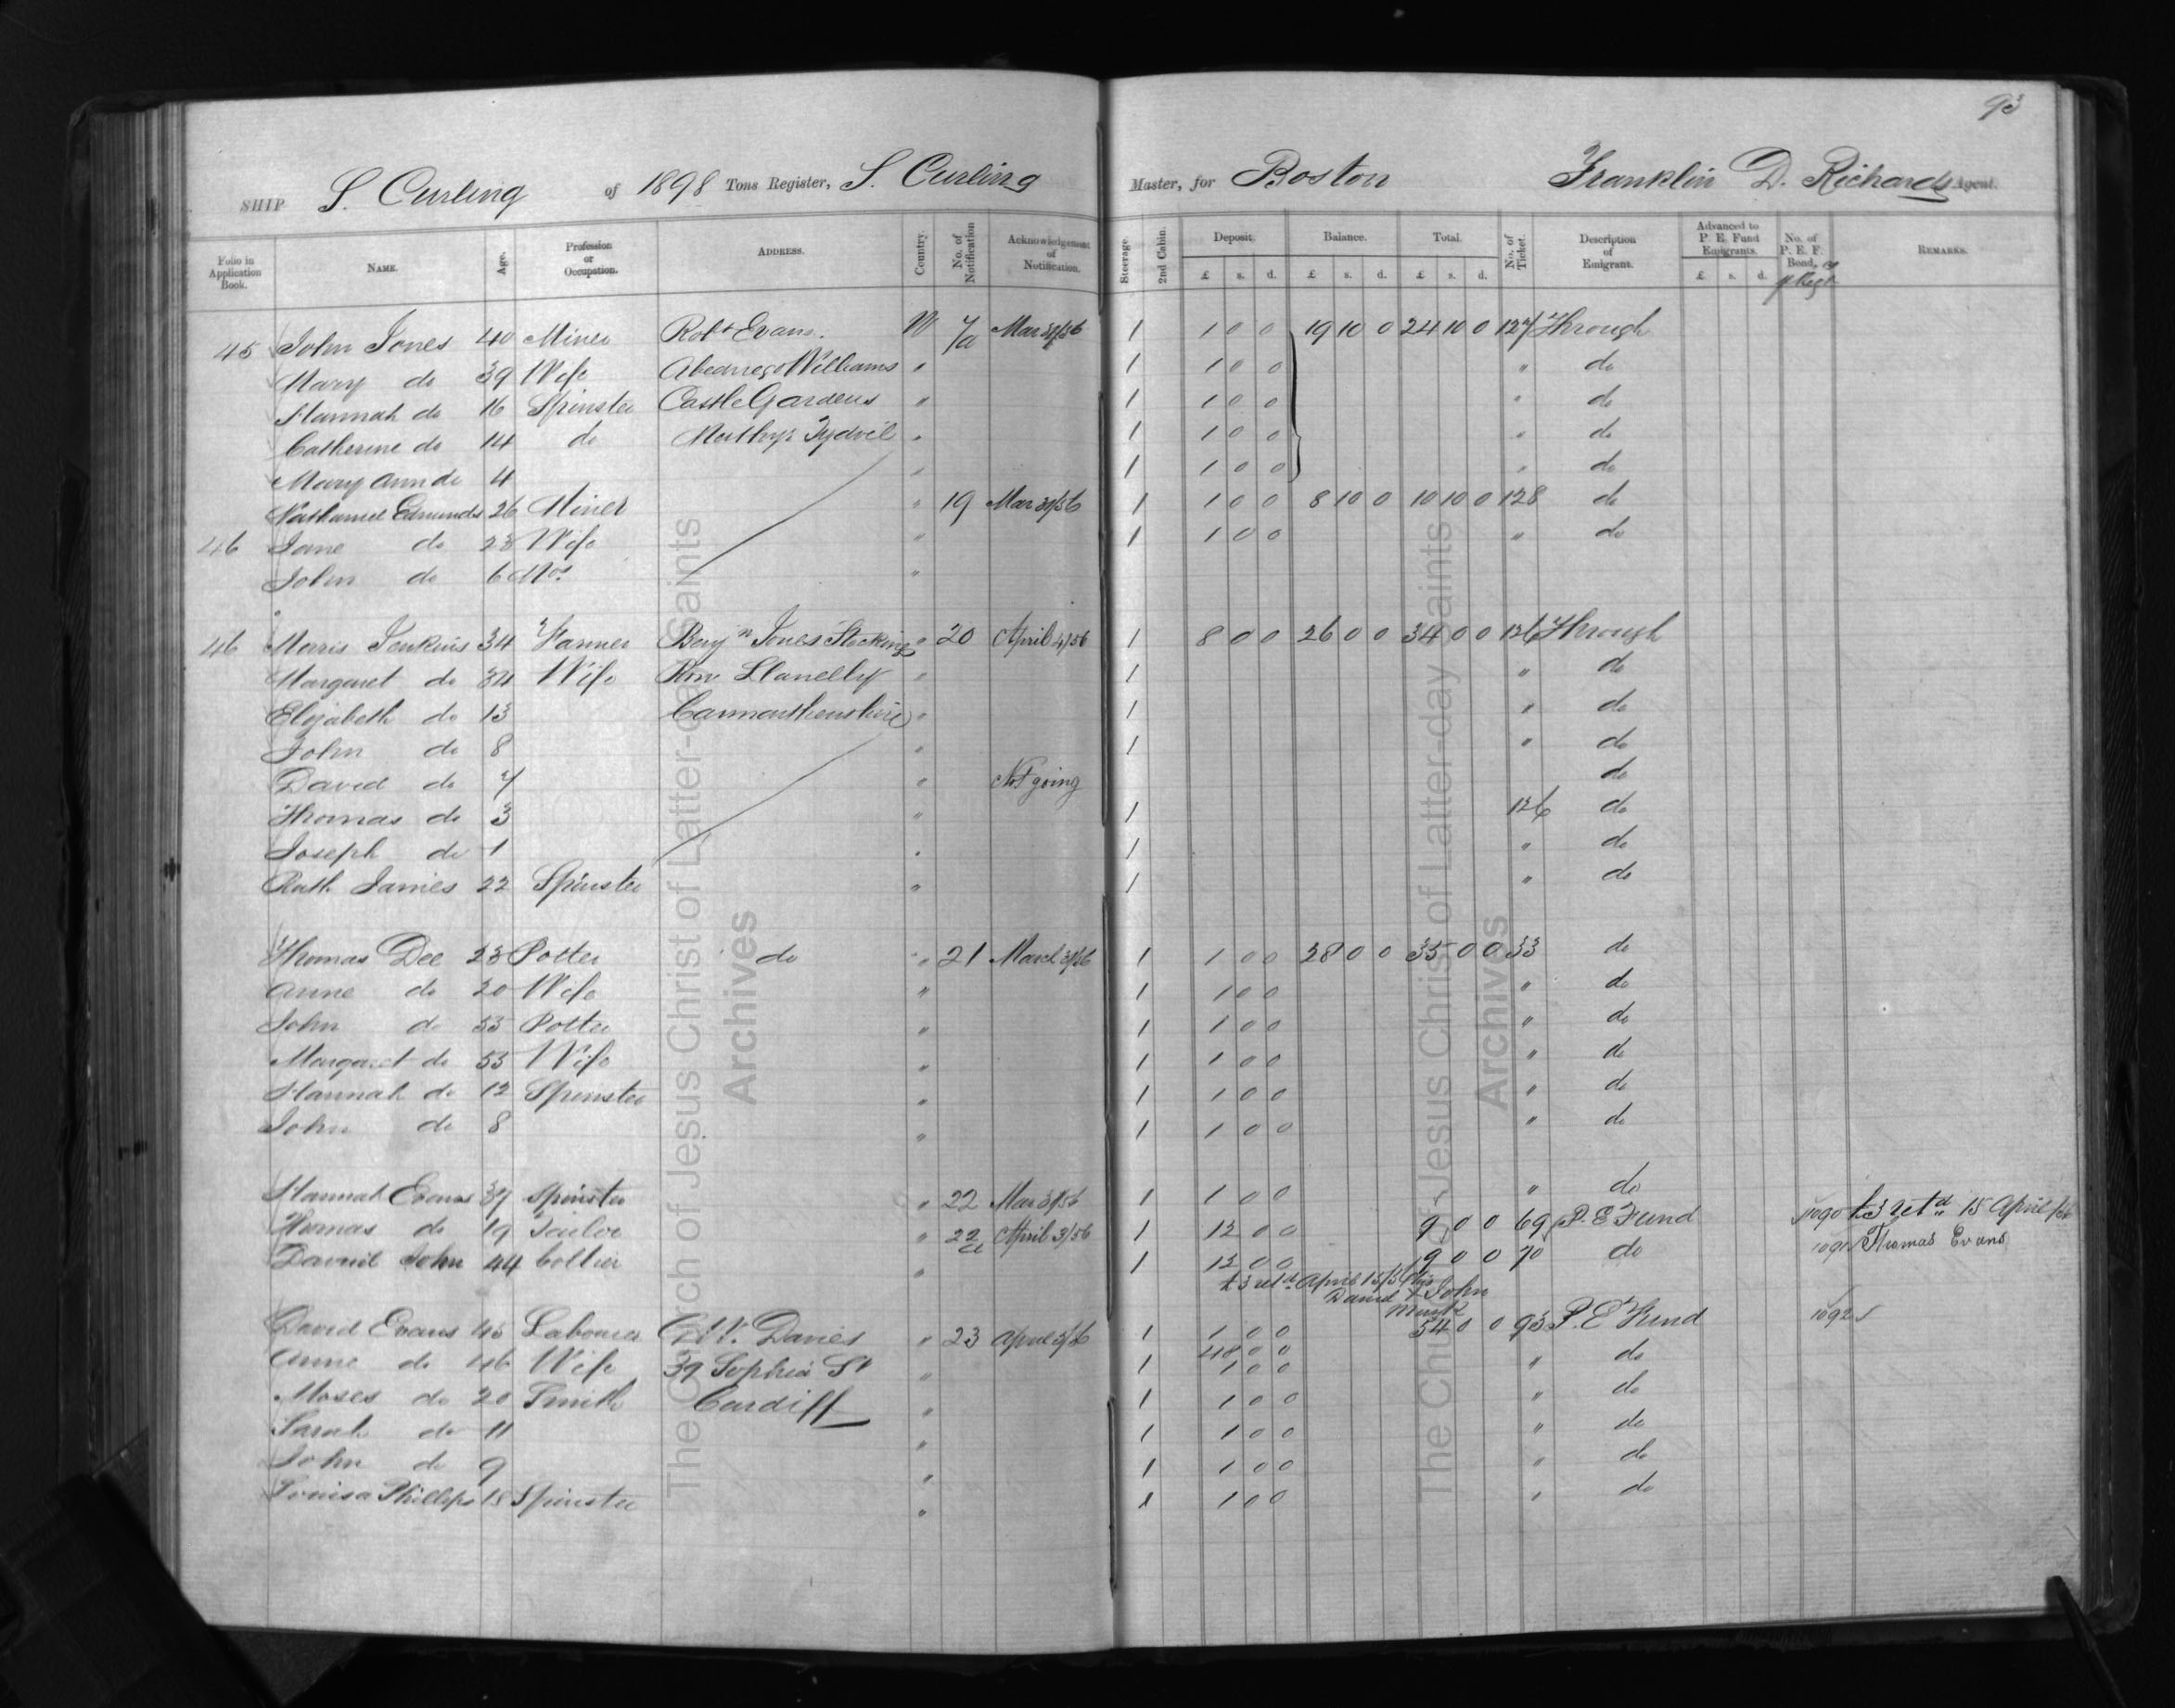 93
SHIP S. Curling of 1898 Tons Register, S. Curling Master, for Boston Franklin D. Richards Agent.
Folio in Application Book. NAME. Age. Profession or Occupation. ADDRESS. Country. No. of Notification Acknowledgement of Notification. Steerage. 2nd Cabin. Deposit. £ s. d. Balance. £ s. d. Total. £ s. d. No. of Ticket. Description of Emigrant. Advanced to P. E. Fund Emigrants. £ s. d. No. of P. E. F. Bond, REMARKS.
45 John Jones 40 Miner Robt Evans. W 7/a Mar 31/56 1 1 0 0 19 10 0 24 10 0 127 Through
Mary do 39 Wife Abednego Williams " 1 1 0 0 " do
Hannah do 16 Spinster Castle Gardens " 1 1 0 0 " do
Catherine do 14 do Merthyr Tydvil " 1 1 0 0 " do
Mary Ann do 4 " 1 1 0 0 " do
Nathaniel Edmunds 26 Miner " 19 Mar 31/56 1 1 0 0 8 10 0 10 10 0 128 do
46 Jane do 23 Wife " 1 1 0 0 " do
John do 6 Mos "
46 Morris Jenkins 34 Farmer Benjn Jones Stocking " 20 April 4/56 1 8 0 0 26 0 0 34 0 0 126 Through
Margaret do 34 Wife Row Llanelly " 1 " do
Elizabeth do 13 Carmarthenshire " 1 " do
John do 8 " 1 " do
David do 7 " Not going do
Thomas do 3 " 1 126 do
Joseph do 1 " 1 " do
Ruth James 22 Spinster " 1 " do
Thomas Dee 23 Potter do " 21 March 31/56 1 1 0 0 28 0 0 35 0 0 33 do
Anne do 20 Wife " 1 1 0 0 " do
John do 55 Potter " 1 1 0 0 " do
Margaret do 53 Wife " 1 1 0 0 " do
Hannah do 12 Spinster " 1 1 0 0 " do
John do 8 " 1 1 0 0 " do
Hannah Evans 37 Spinster " 22 Mar 31/56 1 1 0 0 " do
Thomas do 19 Tailor " 22 a April 3/56 1 12 0 0 9 0 0 69 P. E Fund 1090 £3 retd 15 April /56
David John 44 Collier " 1 12 0 0 9 0 0 70 do 1091 Thomas Evans
£3 retd April 15/56 his
David X John
Mark
David Evans 45 Labourer W. Davies " 23 April 3/56 1 1 0 0 54 0 0 93 P. E Fund 1092
48 0 0
Anne do 46 Wife 39 Sophia St " 1 1 0 0 " do
Moses do 20 Smith Cardiff " 1 1 0 0 " do
Sarah do 11 " 1 1 0 0 " do
John do 9 " 1 1 0 0 " do
Louisa Phillips 18 Spinster " 1 1 0 0 " do
The Church of Jesus Christ of Latter-day Saints
Archives
The Church of Jesus Christ of Latter-day Saints
Archives